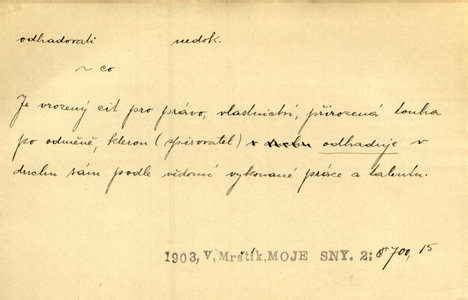 odhadovati nedok.
~ co
Je vrozený cit pro právo, vlastnictví, přirozená touha
po odměně, kterou (spisovatel) odhaduje v
duchu sám podle vědomí vykonané práce a talentu.
1903, V, Mrštík, MOJE SNY. 2: 700, 15